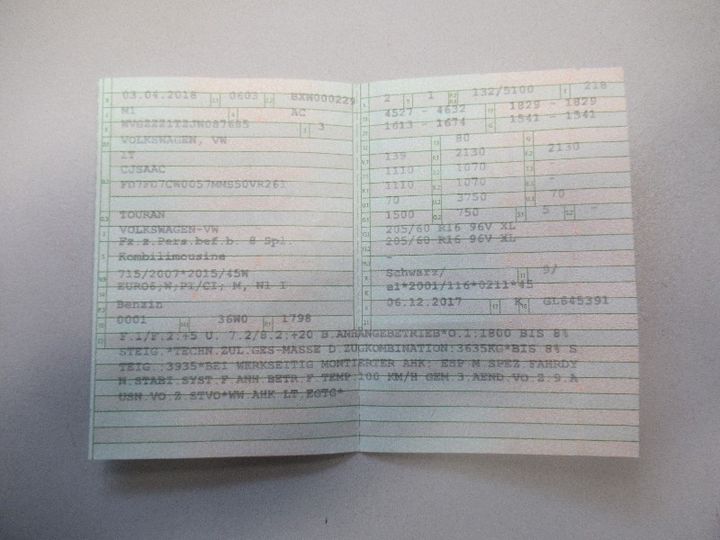 03.04.2018 0603 BXW000229
M1 AC
3
VOLKSWAGEN, VW
1T
CJSAAC
FD7FD7CW0057MMS50VR261
TOURAN
VOLKSWAGEN-VW
Fz.z.Pers.bef.b. 8 Spl.
Kombilimousine
715/2007*2015/45W
EURO6;W;PI/CI; M, N1 I
Benzin
0001 36W0 1798
2 1 132/5100 218
4527 - 4632 1829 - 1829
1613 - 1674 1541 - 1541
80
139 2130 2130
1110 1070 -
1110 1070 -
70 3750 70
1500 750 5 -
205/60 R16 96V XL
205/60 R16 96V XL
-
Schwarz/ 9/
e1*2001/116*0211*45
06.12.2017 K GL645391
F.1/F.2:+5 U. 7.2/8.2:+20 B.ANHÄNGEBETRIEB*O.1:1800 BIS 8%
STEIG.*TECHN.ZUL.GES-MASSE D.ZUGKOMBINATION:3635KG*BIS 8% S
TEIG.:3935*BEI WERKSEITIG MONTIERTER AHK: ESP M SPEZ.FAHRDY
N.STABI.SYST.F ANH BETR.F TEMP.100 KM/H GEM 3.AEND.VO.Z.9.A
USN.VO.Z STVO*WW AHK LT.EGTG*